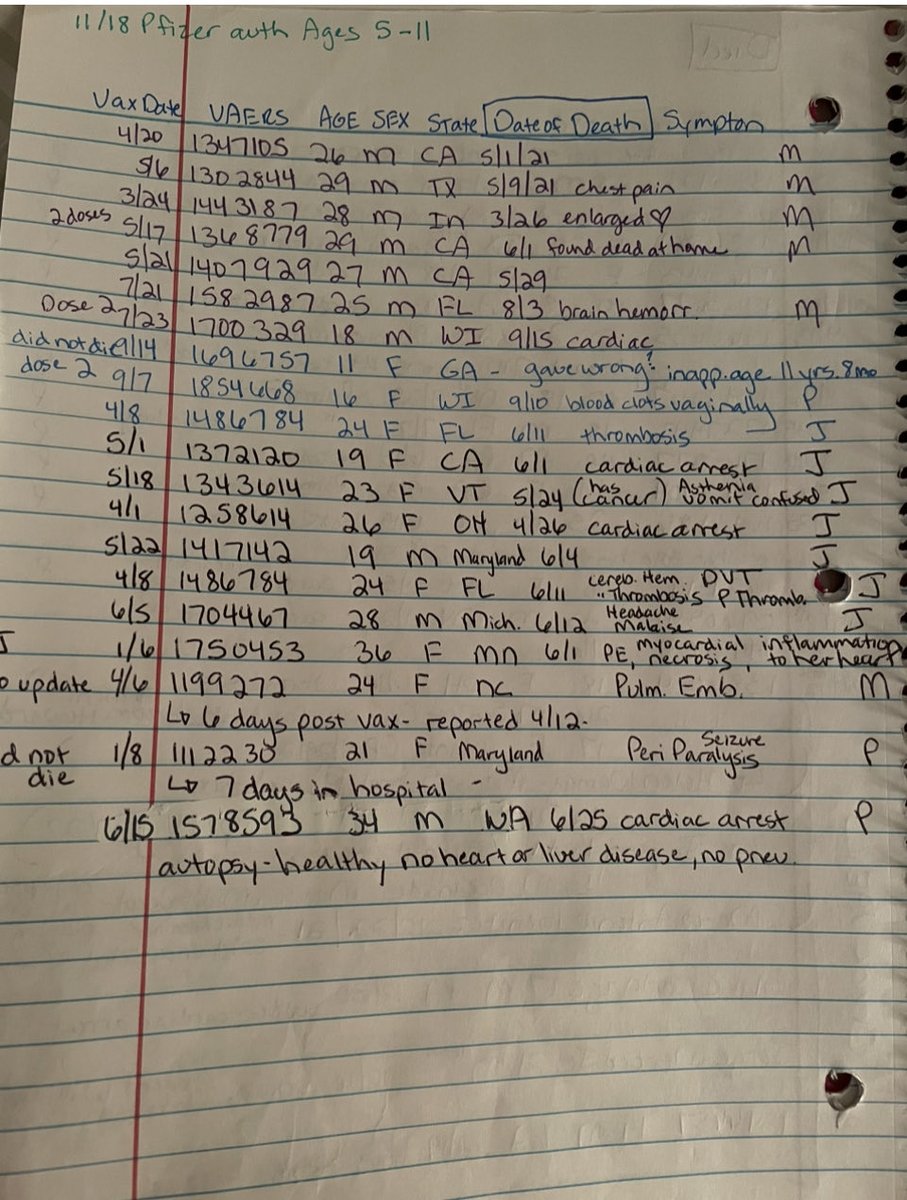 11/18 Pfizer auth Ages 5-11
Vax Date VAERS AGE SEX State Date of Death Sympton
4/20 1347105 26 m CA 5/1/21 M
5/6 1302844 29 m TX 5/9/21 chest pain M
3/24 1443187 28 m In 3/26 enlarged ♡ M
2 doses 5/17 1368779 29 m CA 6/1 found dead at home M
5/21 1407929 27 m CA 5/29
7/21 1582987 25 m FL 8/3 brain hemorr. M
Dose 2 7/23 1700329 18 m WI 9/15 cardiac
did not die 9/14 1696757 11 F GA - gave wrong? inapp. age 11 yrs. 8 mo
dose 2 9/7 1854668 16 F WI 9/10 blood clots vaginally P
4/8 1486784 24 F FL 6/11 thrombosis J
5/1 1372120 19 F CA 6/1 cardiac arrest J
5/18 1343614 23 F VT 5/24 (has cancer) Asthenia vomit confused J
4/1 1258614 26 F OH 4/26 cardiac arrest J
5/22 1417142 19 m Maryland 6/4 J
4/8 1486784 24 F FL 6/11 cereb. Hem. DVT "Thrombosis P Thromb. J
6/5 1704467 28 m Mich. 6/12 Headache Malaise J
J 1/6 1750453 36 F mn 6/1 PE, myocardial necrosis, inflammation to her heart
o update 4/6 1199272 24 F nc Pulm. Emb. M
↳ 6 days post vax - reported 4/12.
d not die 1/8 1112230 21 F Maryland Peri Paralysis Seizure P
↳ 7 days in hospital -
6/15 1578593 34 m WA 6/25 cardiac arrest P
autopsy - healthy no heart or liver disease, no pneu.